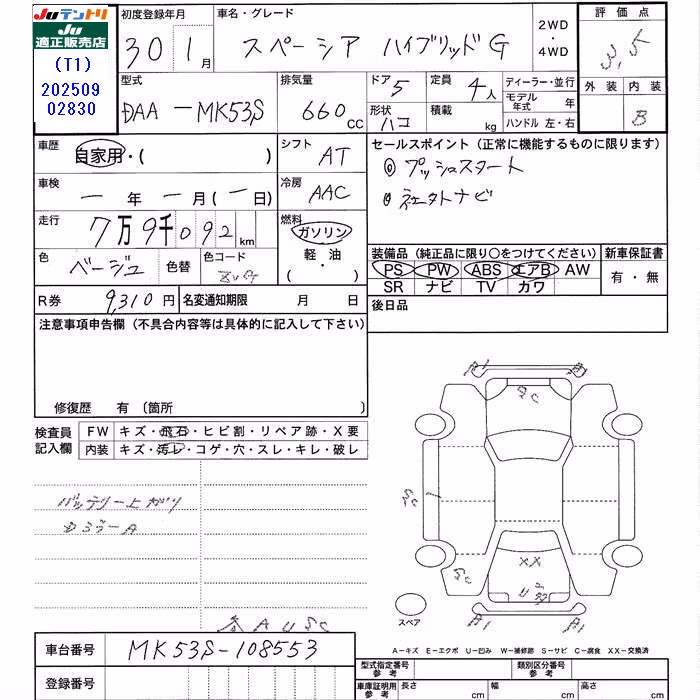 Juテントリ
Ju
適正販売店
(T1)
202509
02830
初度登録年月
30 1月
車名・グレード
スペーシア ハイブリッドG
2WD・4WD
評価点
3.5
型式
DAA-MK53S
排気量
660cc
ドア 5
形状 ハコ
定員 4人
積載 kg
ディーラー・並行
モデル年式 年
ハンドル 左・右
外装 内装
B
車歴 自家用・( )
シフト AT
セールスポイント（正常に機能するものに限ります）
◎ プッシュスタート
車検 ー年ー月(ー日)
冷房 AAC
走行 7万9千092km
燃料 ガソリン・軽油・( )
色 ベージュ 色替 色コード
装備品（純正品に限り○をつけてください） 新車保証書
PS PW ABS エアB AW 有・無
SR ナビ TV カワ
R券 9,310円 名変通知期限 月 日
後日品
注意事項申告欄（不具合内容等は具体的に記入して下さい）
修復歴 有〔箇所 〕
検査員記入欄
FW キズ・飛石・ヒビ割・リペア跡・X要
内装 キズ・汚レ・コゲ・穴・スレ・キレ・破レ
バッテリー上がり
XX
スペア
A1
A-キズ E-エクボ U-凹み W-補修跡 S-サビ C-腐食 XX-交換済
車台番号 MK53S-108553
登録番号
型式指定番号 参考 類別区分番号 参考
車庫証明用 参考 長さ cm 幅 cm 高さ cm